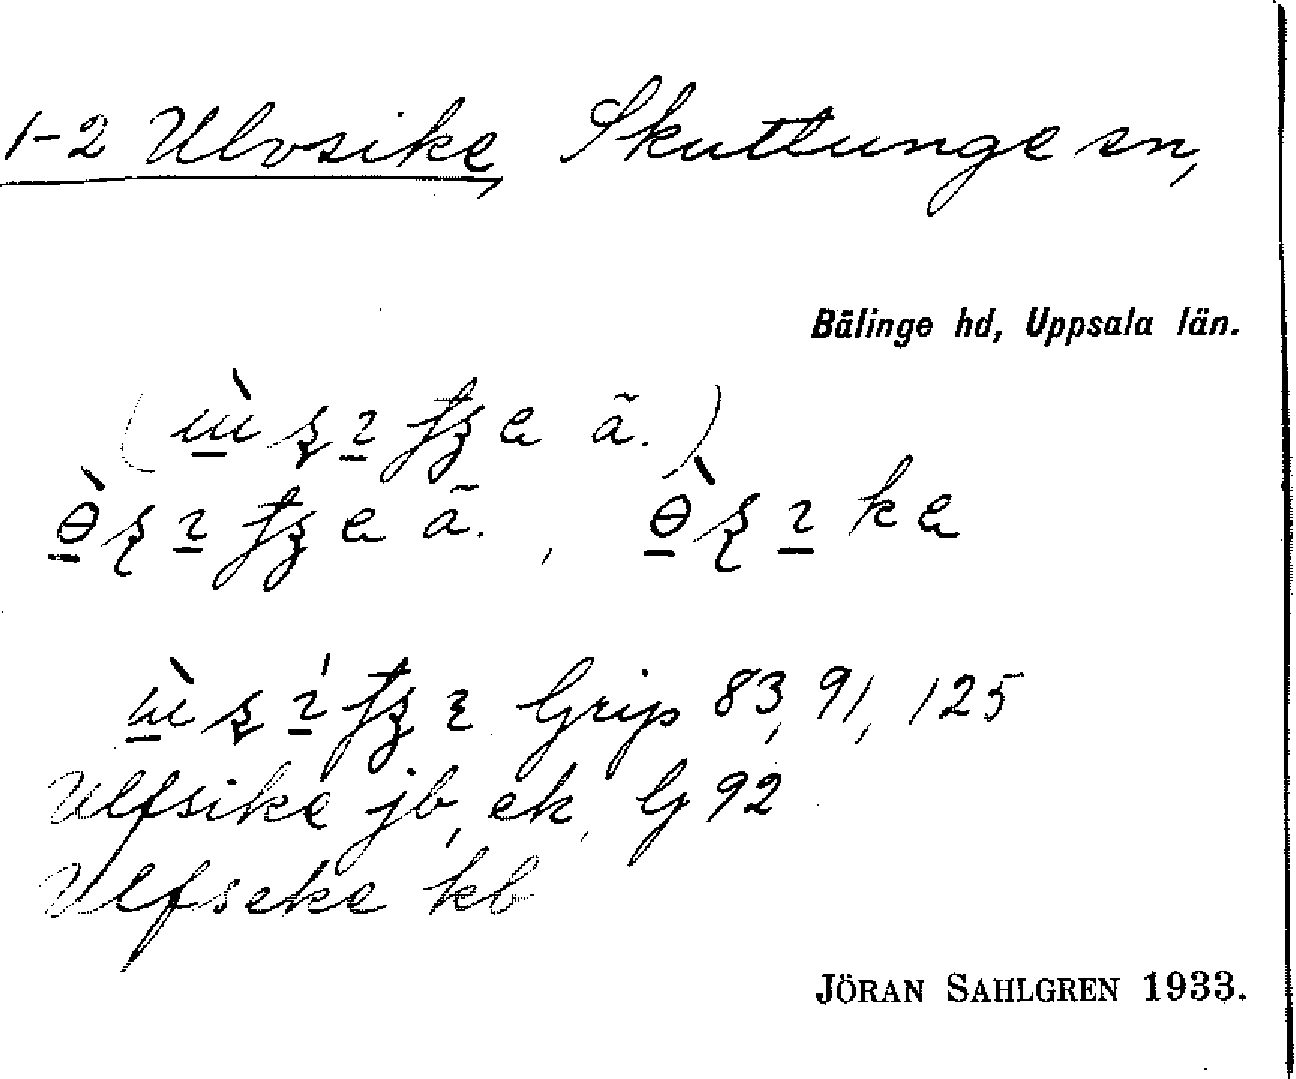 1-2 Ulvsike, Skuttunge sn,
Bälinge hd, Uppsala län.
ã.)
ã. ,
Grip 83, 91, 125
Ulfsike jb, ek, G 92
Ulfseke kb
JÖRAN SAHLGREN 1933.